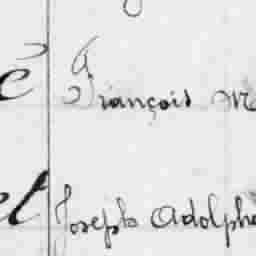 é François M
et Joseph Adolphe